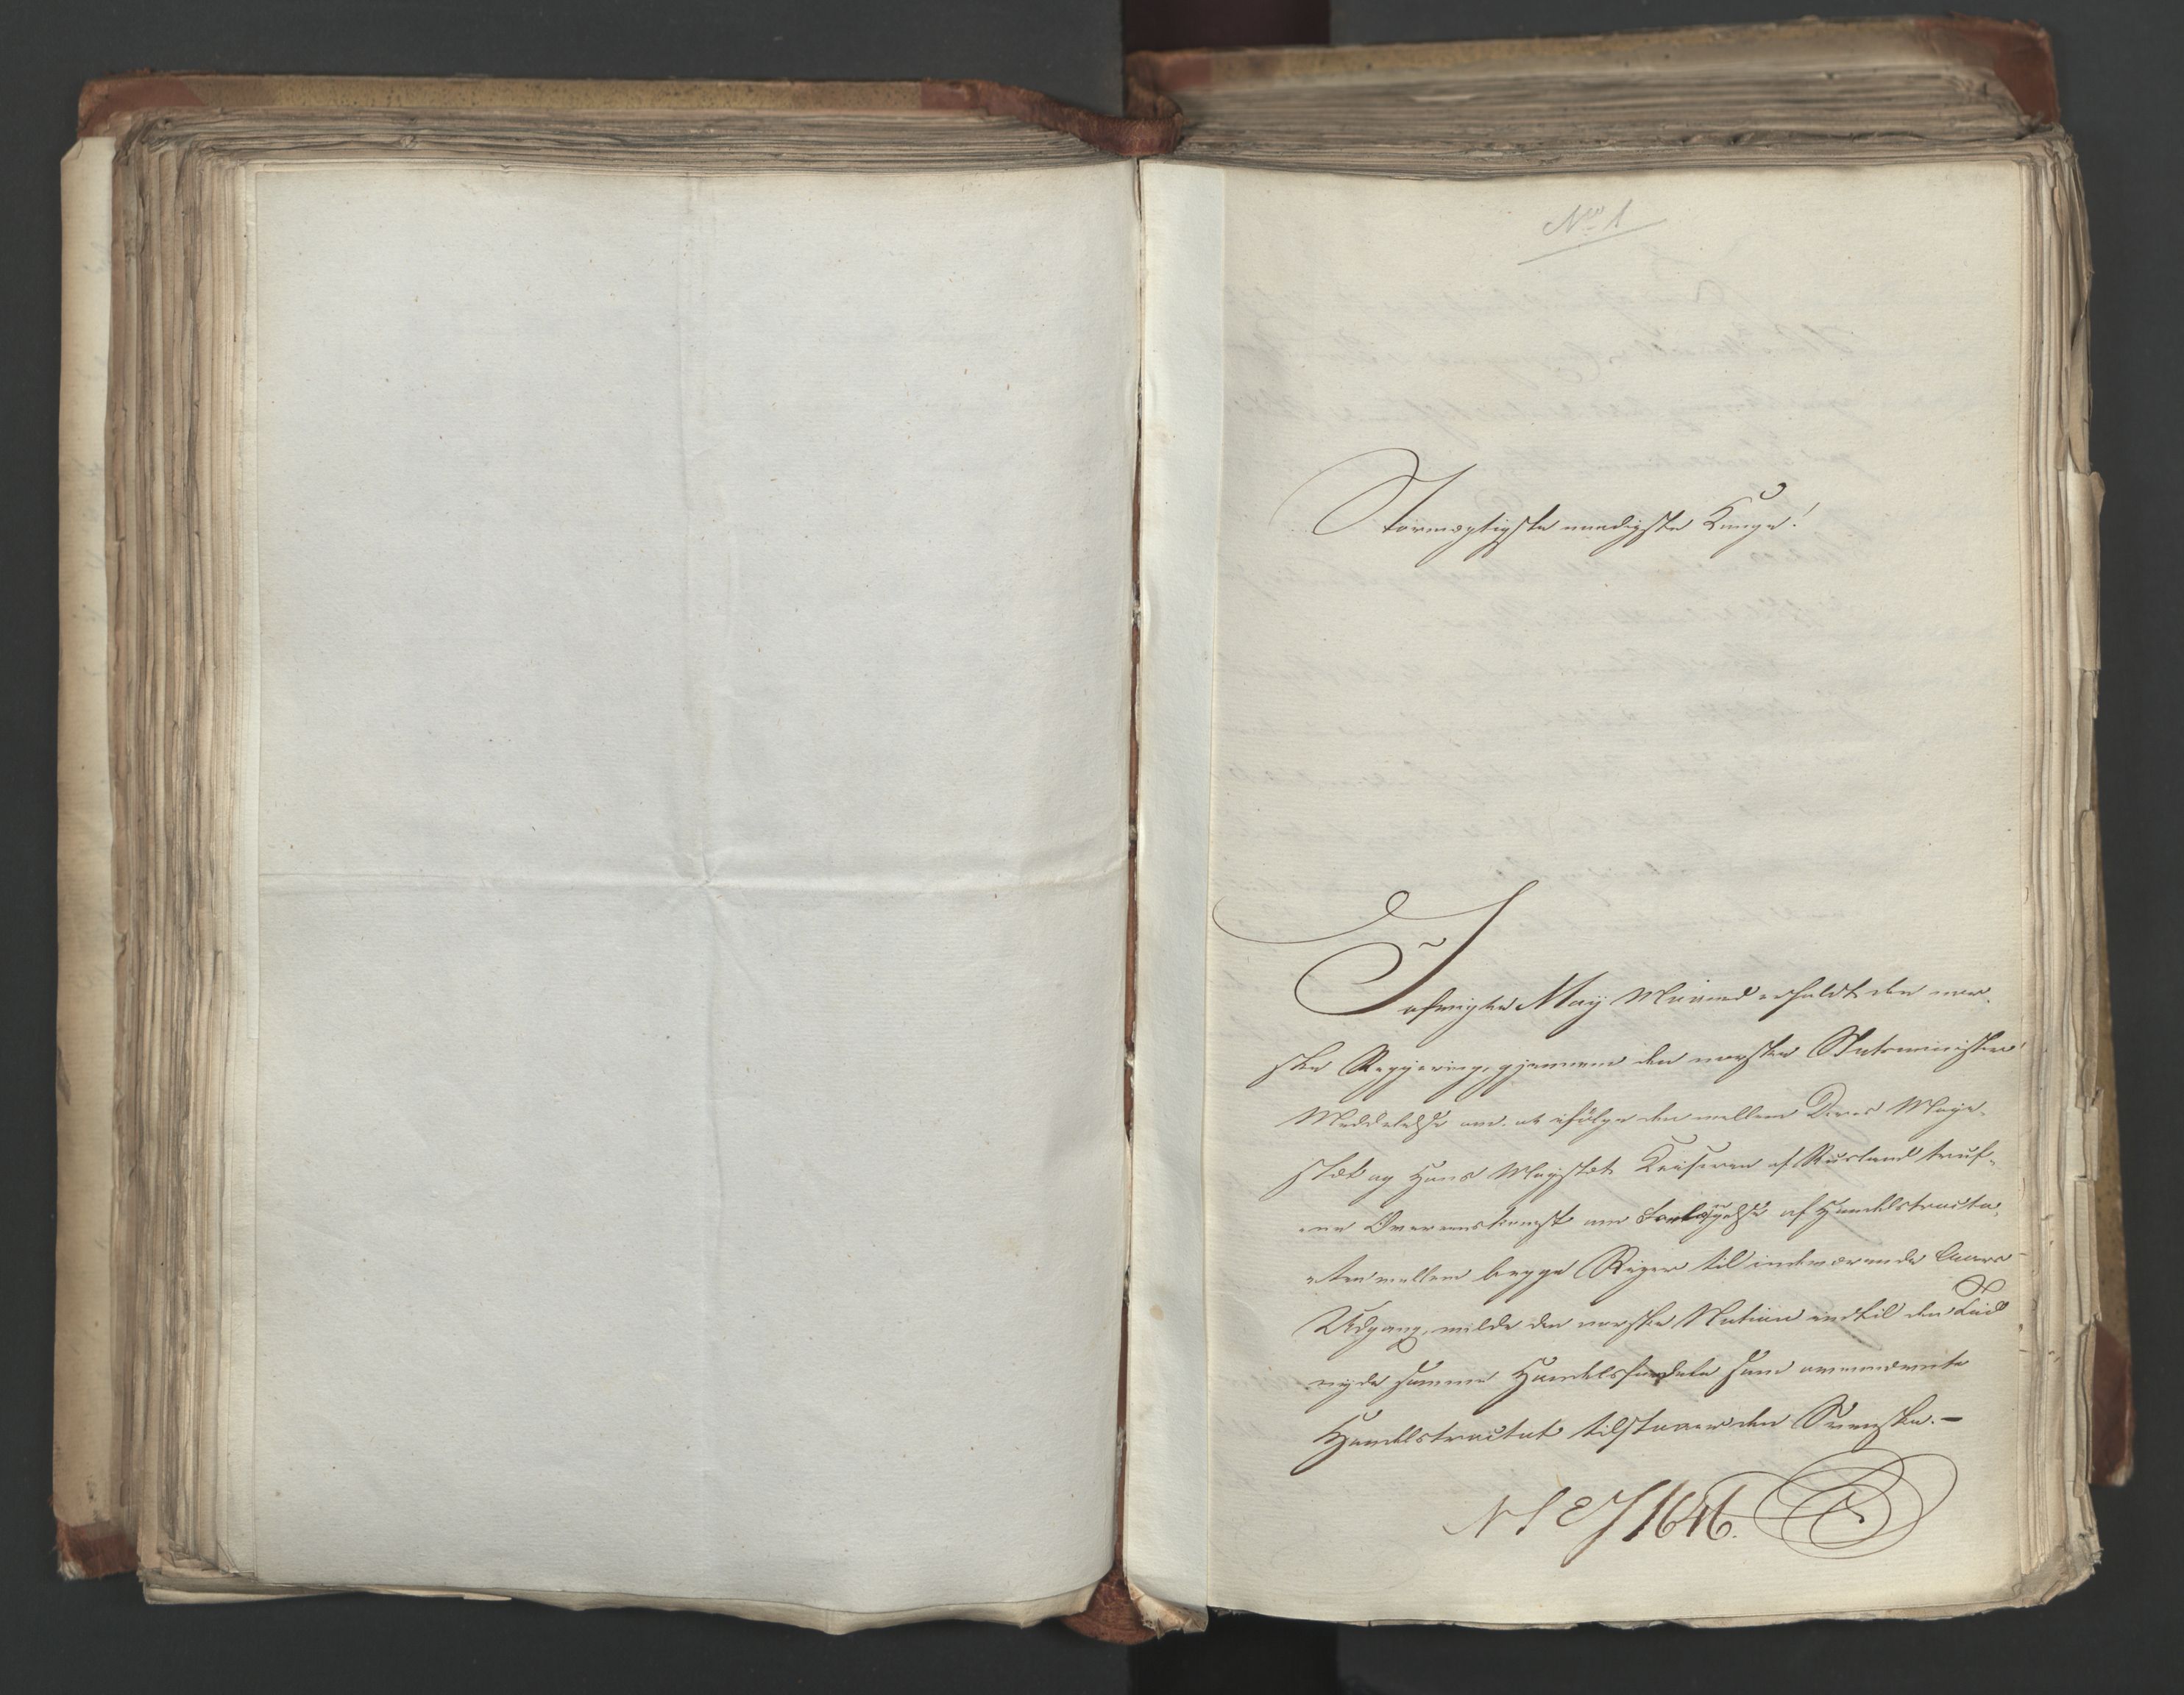 No 1
Stormægtigste naadigste Konge!
I afvigte Maij Maaned erholdt den nor-
ske Regjering, gjennem den norske Statsminister
Meddelelse om, at ifølge den mellem Deres Maje-
stæt og Hans Majestæt Keiseren af Rusland truf-
ne Overeenskomst om Forlængelse af Handelstracta-
ten mellem begge Riger til indeværende Aars
Udgang, vilde den norske Nation indtil den Tid
nyde samme Handelsfordele som ommeldente
Handelstractat tilstaaer den Svenske. —
1646.